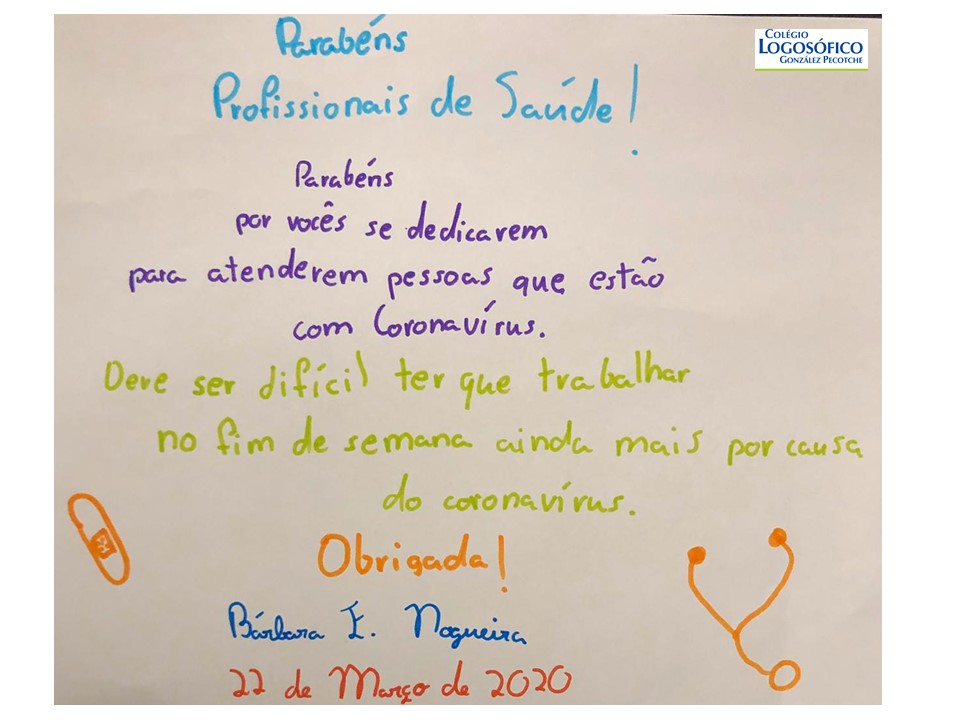 Parabéns
COLÉGIO
LOGOSÓFICO
GONZÁLEZ PECOTCHE
Profissionais de Saúde!
Parabéns
por vocês se dedicarem
para atenderem pessoas que estão
com Coronavírus.
Deve ser difícil ter que trabalhar
no fim de semana ainda mais por causa
do coronavírus.
Obrigada!
Bárbara E. Nogueira
22 de Março de 2020